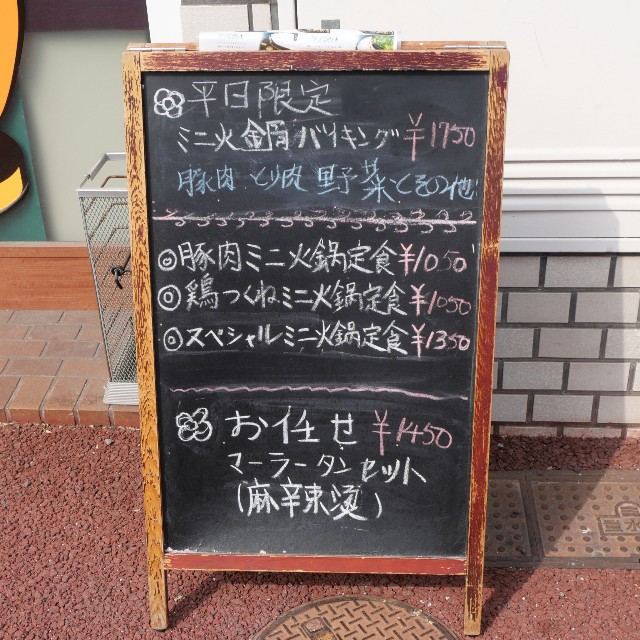 平日限定
ミニ火鍋バイキング ¥1750
豚肉 とり肉 野菜とその他
◎豚肉ミニ火鍋定食¥1050
◎鶏つくねミニ火鍋定食¥1050
◎スペシャルミニ火鍋定食¥1350
お任せ ¥1450
マーラータンセット
(麻辣烫)